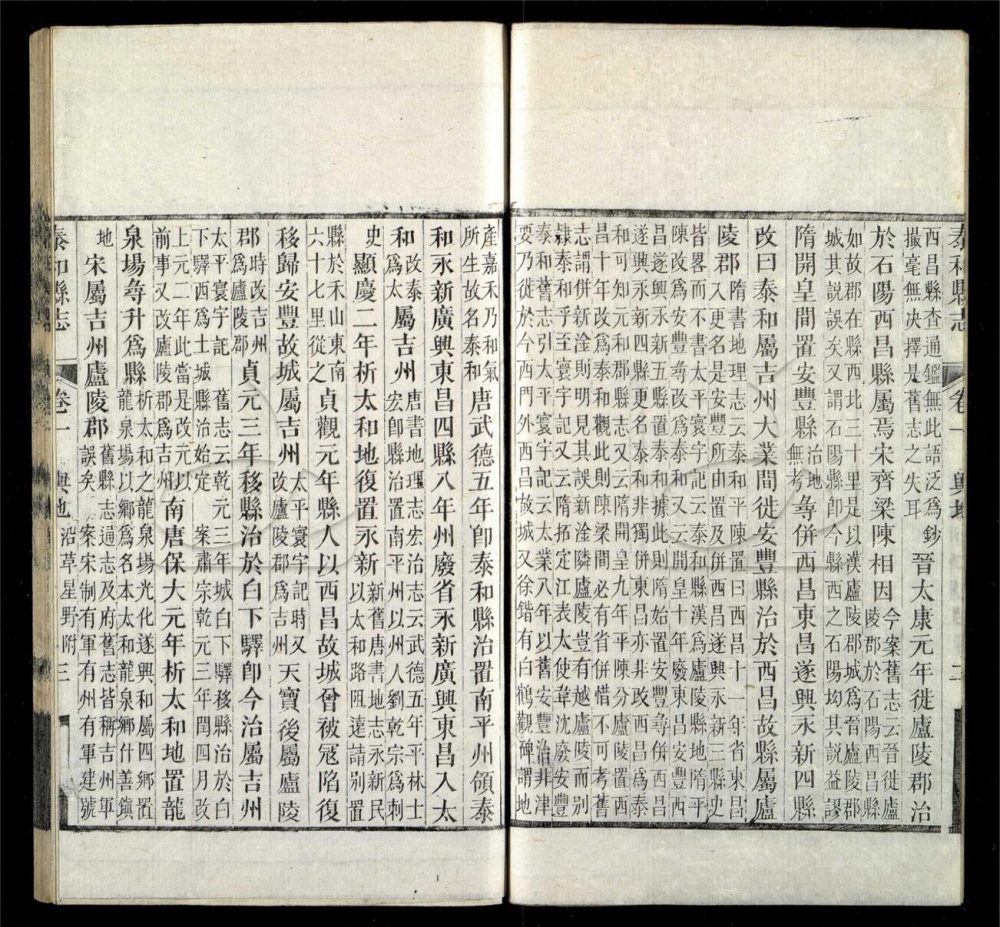 泰和縣志 卷一 輿地 二
西昌縣查通鑑無此語泛為鈔
撮毫無决擇是舊志之失耳
晉太康元年徙廬陵郡治
於石陽西昌縣屬焉宋齊梁陳相因
今案舊志云晉徙廬
陵郡於石陽西昌縣
如故郡在縣西北三十里是以漢廬陵郡城為晉廬陵郡
城其說誤矣又謂石陽縣卽今縣西之石陽均其說益謬
隋開皇間置安豐縣
治地
無考
尋併西昌東昌遂興永新四縣
改曰泰和屬吉州大業間徙安豐縣治於西昌故縣屬廬
陵郡
隋書地理志云泰和平陳置曰西昌十一年省東昌
入更名是安豐所由置及併西昌遂興永新三縣史
皆畧而不書太平寰宇記云泰和縣漢為廬陵縣地隋平
陳改為安豐尋改為泰和又云開皇十年廢東昌安豐西
昌遂興永新五縣置泰和據此則隋始置安豐尋併西昌
遂興永新四縣更名泰和非獨併東昌亦非改西昌為泰
和可知元和郡縣志又云隋開皇九年平陳分廬陵置西
昌十年改為泰和觀此則陳梁間必有省併惜不可考舊
志謂併新淦則明見其誤新淦隣廬陵豈有越廬陵而别
隸泰和乎至寰宇記又云隋拓定江表大使韋沈廢安豐
泰和舊志引太平寰宇記云大業八年以舊安豐治非津
要乃徙於今西門外西昌故城又徐鍇有白鶴觀碑謂地
產嘉禾乃和氣
所生故名泰和
唐武德五年卽泰和縣治置南平州領泰
和永新廣興東昌四縣八年州廢省永新廣興東昌入太
和
改泰
為太
屬吉州
唐書地理志宏治志云武德五年平林士
宏卽縣治置南平州以州人劉乾宗為刺
史
顯慶二年析太和地復置永新
新舊唐書地志永新民
以太和路阻遠請别置
縣於禾山東南
六十七里從之
貞觀元年縣人以西昌故城曾被冦陷復
移歸安豐故城屬吉州
太平寰宇記時又
改廬陵郡為吉州
天寶後屬廬陵
郡
時改吉州
為廬陵郡
貞元三年移縣治於白下驛卽今治屬吉州
太平寰宇記 舊志云乾元三年城白下驛移縣治於白
下驛西為土城縣治始定 案肅宗乾元三年閏四月改
上元二年此當是改元以
前事又改廬陵郡為吉州
南唐保大元年析太和地置龍
泉場尋升為縣
析太和之龍泉場光化遂興和屬四鄉置
龍泉場以鄉為名本太和龍泉鄉什善鎮
地
宋屬吉州廬陵郡
舊縣志通志及府舊志皆稱吉州軍
誤矣 案宋制有軍有州有軍建號
泰和縣志 卷一 輿地 沿革星野附 三